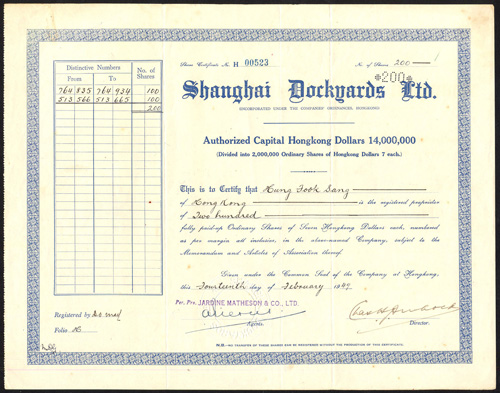 Share Certificate No. H 00523
No. of Shares 200
*200*
Shanghai Dockyards Ltd.
INCORPORATED UNDER THE COMPANIES' ORDINANCES, HONGKONG
Authorized Capital Hongkong Dollars 14,000,000
(Divided into 2,000,000 Ordinary Shares of Hongkong Dollars 7 each.)
Distinctive Numbers
No. of Shares
From To
764 835 764 934 100
513 566 513 665 100
200
This is to Certify that Hung Took Sang
of Hong Kong is the registered proprietor
of Two hundred
fully paid-up Ordinary Shares of Seven Hongkong Dollars each, numbered
as per margin all inclusive, in the above-named Company, subject to the
Memorandum and Articles of Association thereof.
Given under the Common Seal of the Company at Hongkong,
this Fourteenth day of February 1947
Per. Pro. JARDINE MATHESON & CO., LTD.
Agents.
Director.
Registered by
Folio
N.B.—NO TRANSFER OF THESE SHARES CAN BE REGISTERED WITHOUT THE PRODUCTION OF THIS CERTIFICATE.